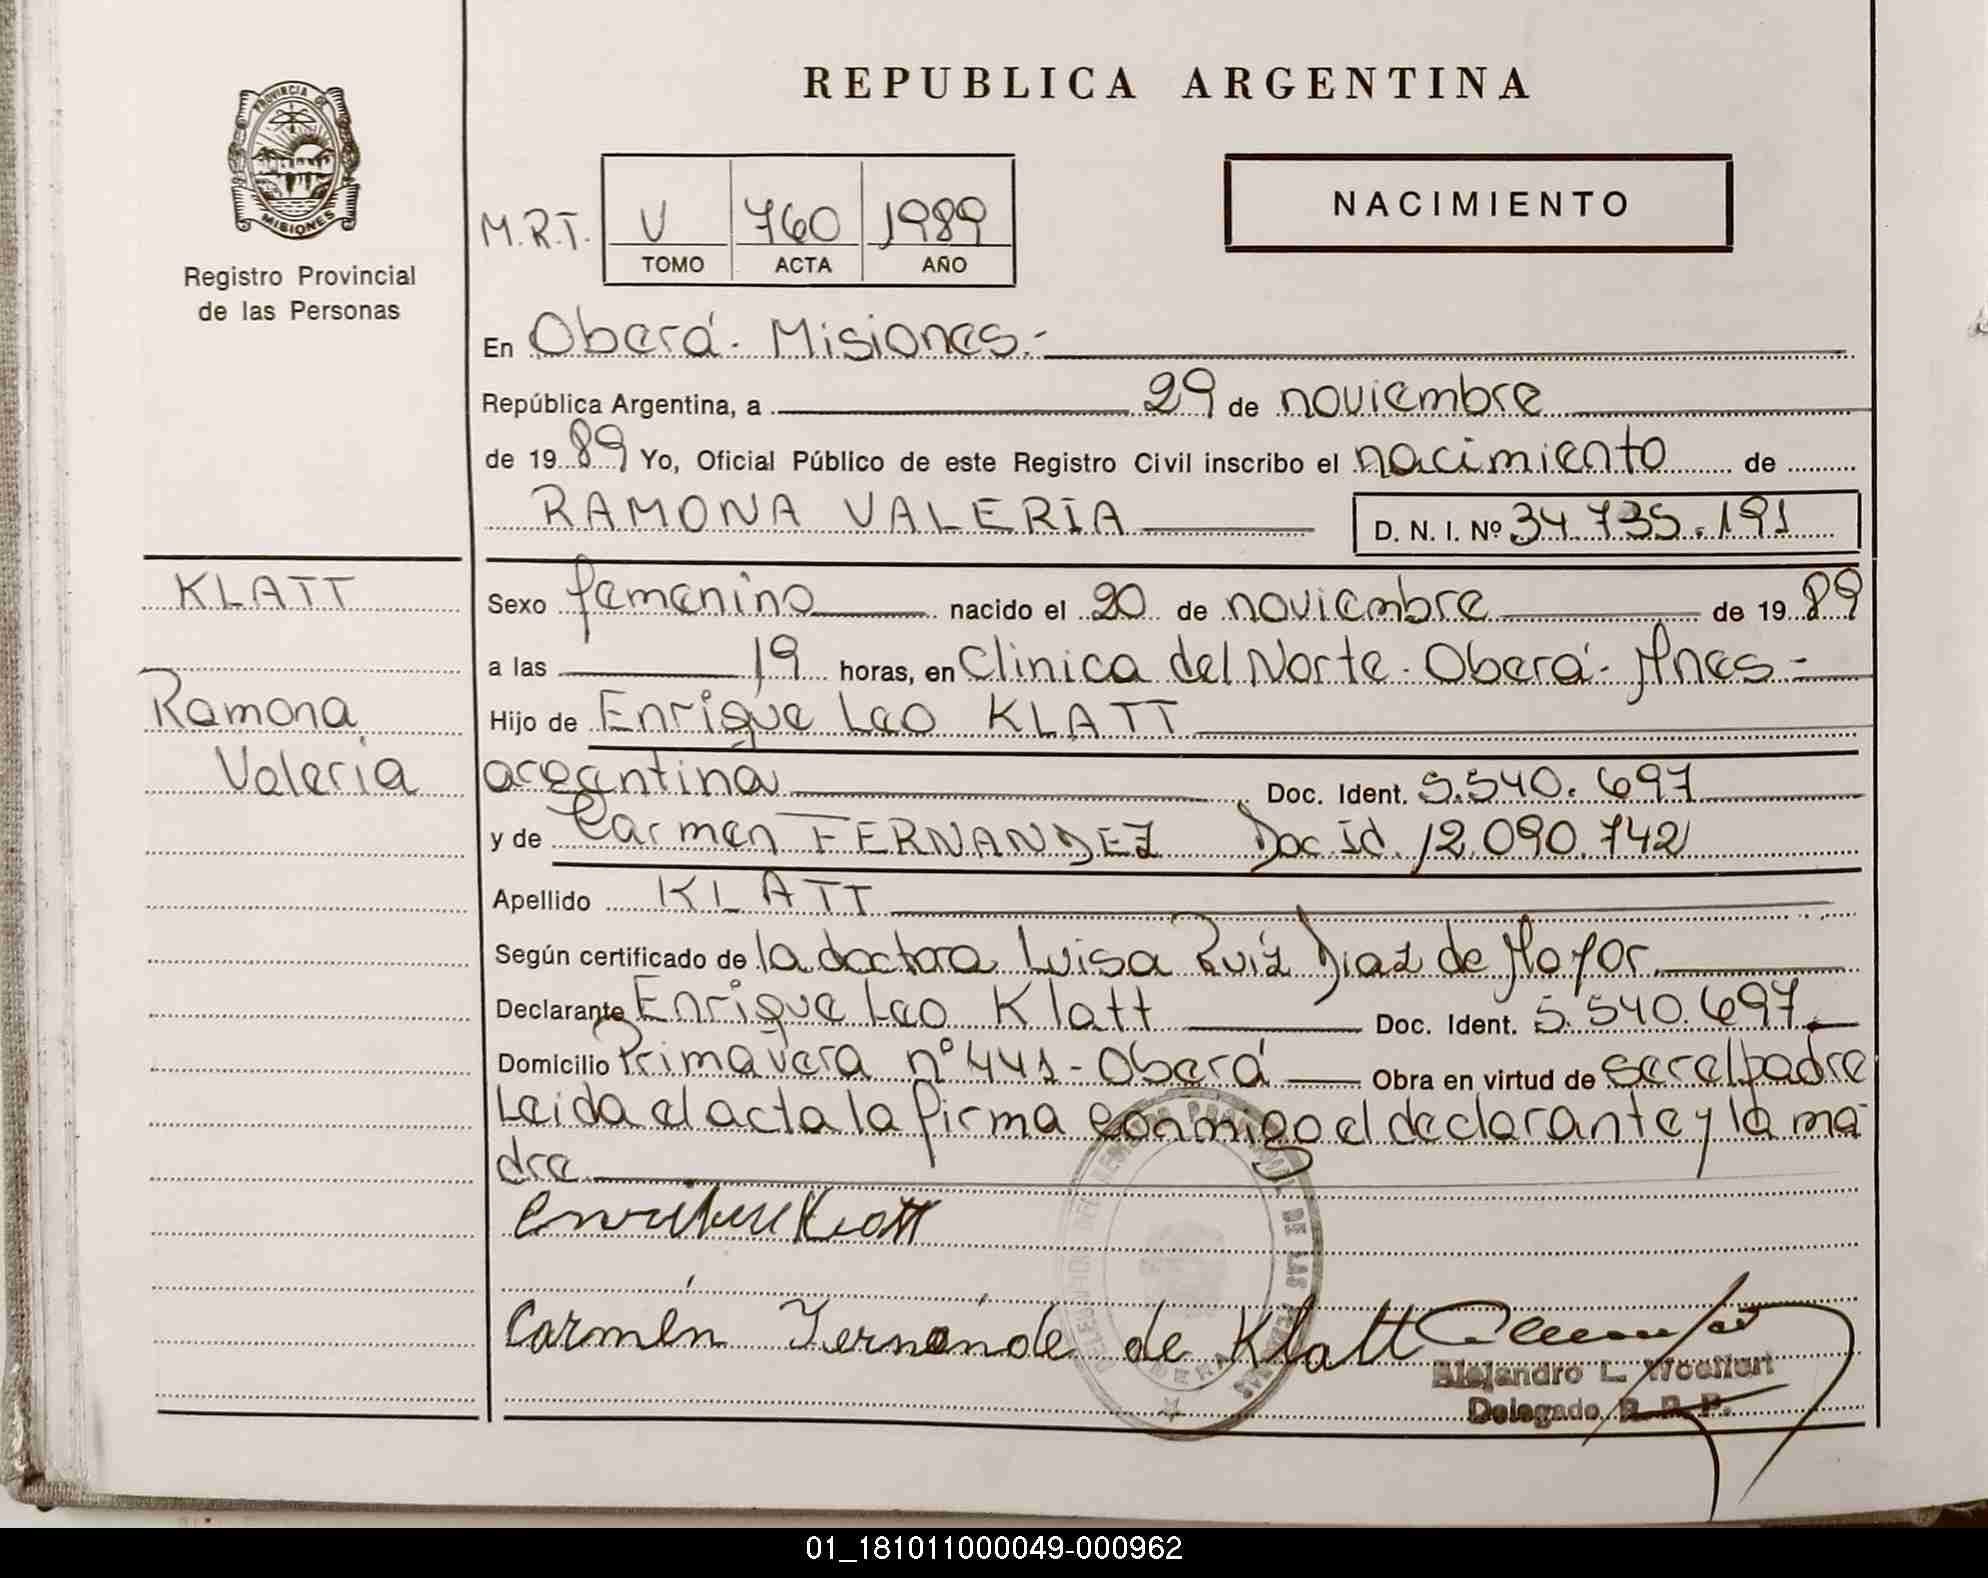 REPUBLICA ARGENTINA
PROVINCIA DE
MISIONES
Registro Provincial
de las Personas
NACIMIENTO
M.R.T. V 760 1989
TOMO ACTA AÑO
En Oberá - Misiones.-
República Argentina, a 29 de noviembre
de 1989 Yo, Oficial Público de este Registro Civil inscribo el nacimiento de
RAMONA VALERIA D. N. I. Nº 34.735.191
KLATT
Ramona
Valeria
Sexo femenino nacido el 20 de noviembre de 1989
a las 19 horas, en Clinica del Norte - Oberá - Mnes -
Hijo de Enrique Leo KLATT
argentina Doc. Ident. 5.540.697
y de Carmen FERNANDEZ Doc Id. 12.090.742
Apellido KLATT
Según certificado de la doctora Luisa Ruíz Diaz de Mayor.
Declarante Enrique Leo Klatt Doc. Ident. 5.540.697
Domicilio Primavera nº 441 - Oberá Obra en virtud de ser el padre
Leida el acta la firma conmigo el declarante y la ma-
dre
Klatt
Carmén Fernánde de Klatt
Alejandro L.
Delegado R. P. P.
01_181011000049-000962